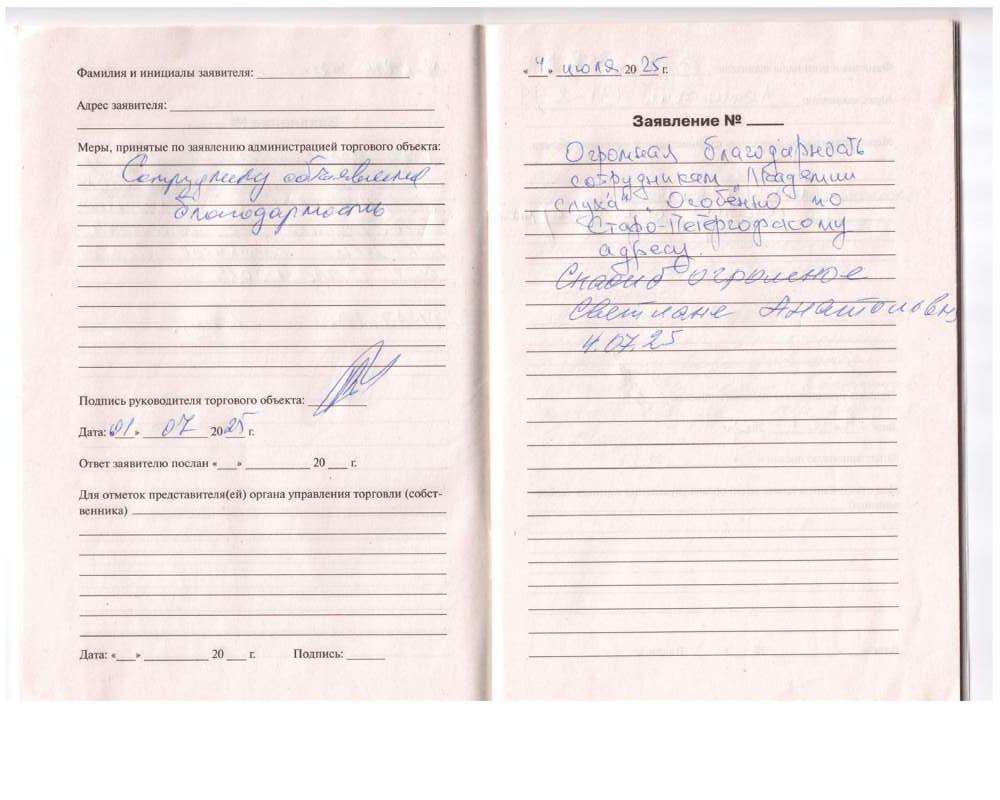 Фамилия и инициалы заявителя:
Адрес заявителя:
Меры, принятые по заявлению администрацией торгового объекта:
Сотруднику объявлена
благодарность
Подпись руководителя торгового объекта:
Дата: «01» 07 2025 г.
Ответ заявителю послан «___» ________ 20 ___ г.
Для отметок представителя(ей) органа управления торговли (собст-
венника)
Дата: «___» ________ 20 ___ г. Подпись: ______
«4» июля 2025 г.
Заявление № ____
Огромная благодарность
сотрудникам "Академии
слуха". Особенно по
Старо-Петергофскому
адресу.
Спасибо огромное
Светлане Анатоловн
4.07.25